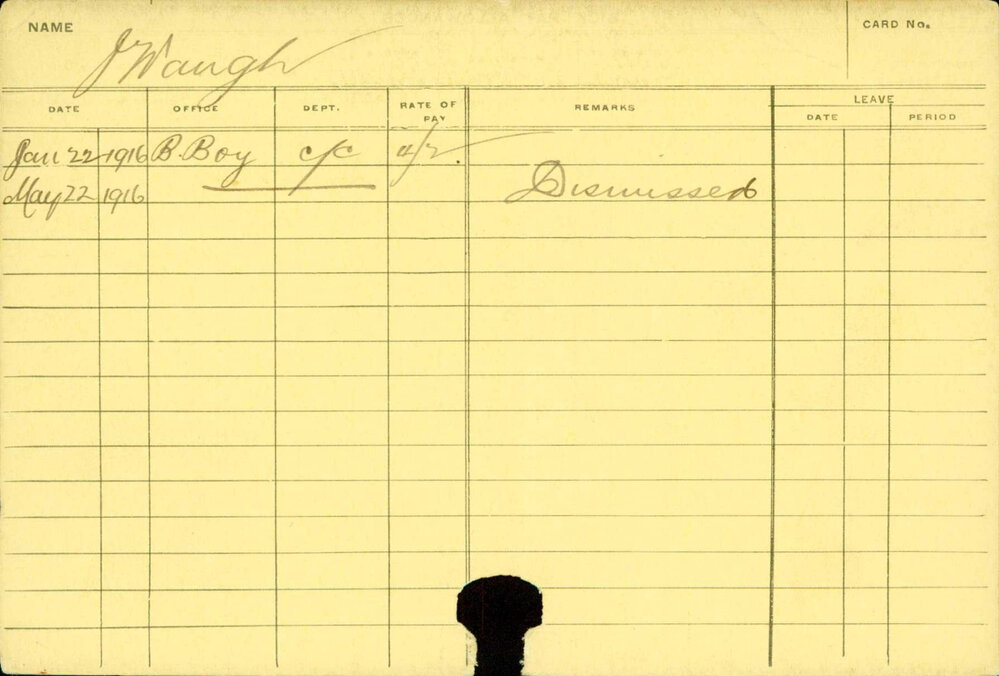 NAME
J Waugh
CARD No.
DATE OFFICE DEPT. RATE OF PAY REMARKS LEAVE
DATE PERIOD
Jan 22 1916 B. Boy c/c 4/2.
May 22 1916 Dismissed